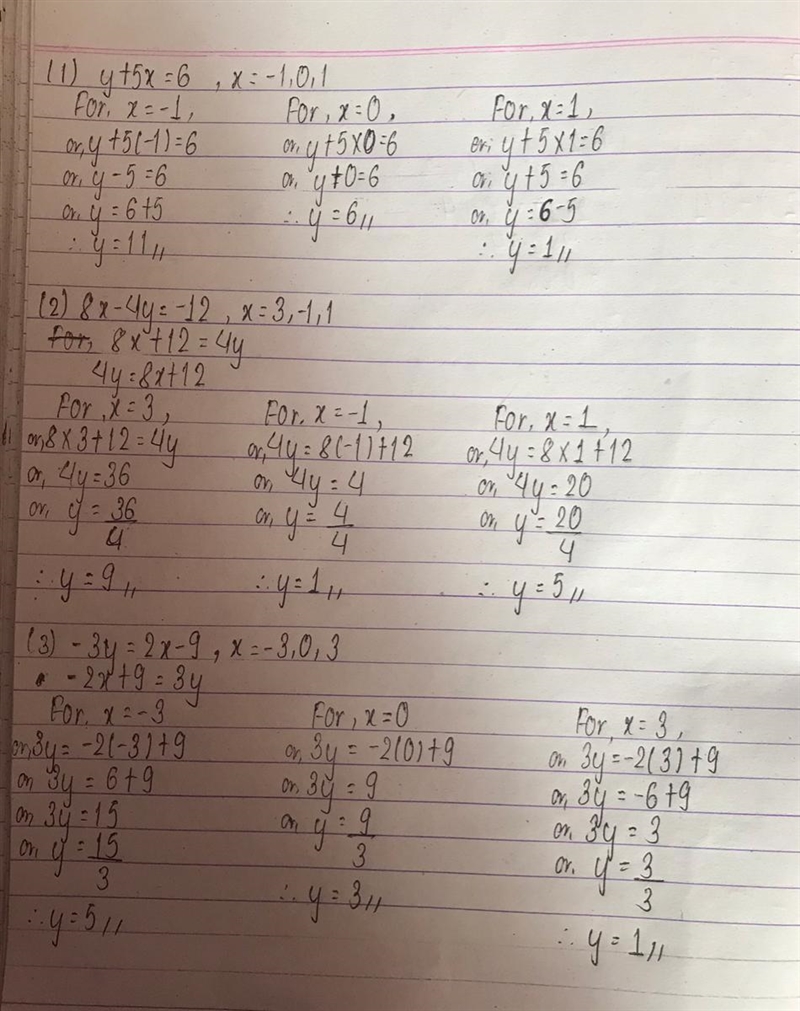 (1) y+5x=6 , x=-1,0,1
For, x=-1, For, x=0, For, x=1,
or, y+5(-1)=6 or, y+5×0=6 or, y+5×1=6
or, y-5=6 or, y+0=6 or, y+5=6
or, y=6+5 ∴ y=6,, or, y=6-5
∴ y=11,, ∴ y=1,,
(2) 8x-4y=-12 , x=3,-1,1
For, 8x+12=4y
4y=8x+12
For, x=3, For, x=-1, For, x=1,
or, 8×3+12=4y or, 4y=8(-1)+12 or, 4y=8×1+12
or, 4y=36 or, 4y=4 or, 4y=20
or, y=36/4 or, y=4/4 or, y=20/4
∴ y=9,, ∴ y=1,, ∴ y=5,,
(3) -3y=2x-9 , x=-3,0,3
-2x+9=3y
For, x=-3 For, x=0 For, x=3,
or, 3y=-2(-3)+9 or, 3y=-2(0)+9 or, 3y=-2(3)+9
or, 3y=6+9 or, 3y=9 or, 3y=-6+9
or, 3y=15 or, y=9/3 or, 3y=3
or, y=15/3 ∴ y=3,, or, y=3/3
∴ y=5,, ∴ y=1,,